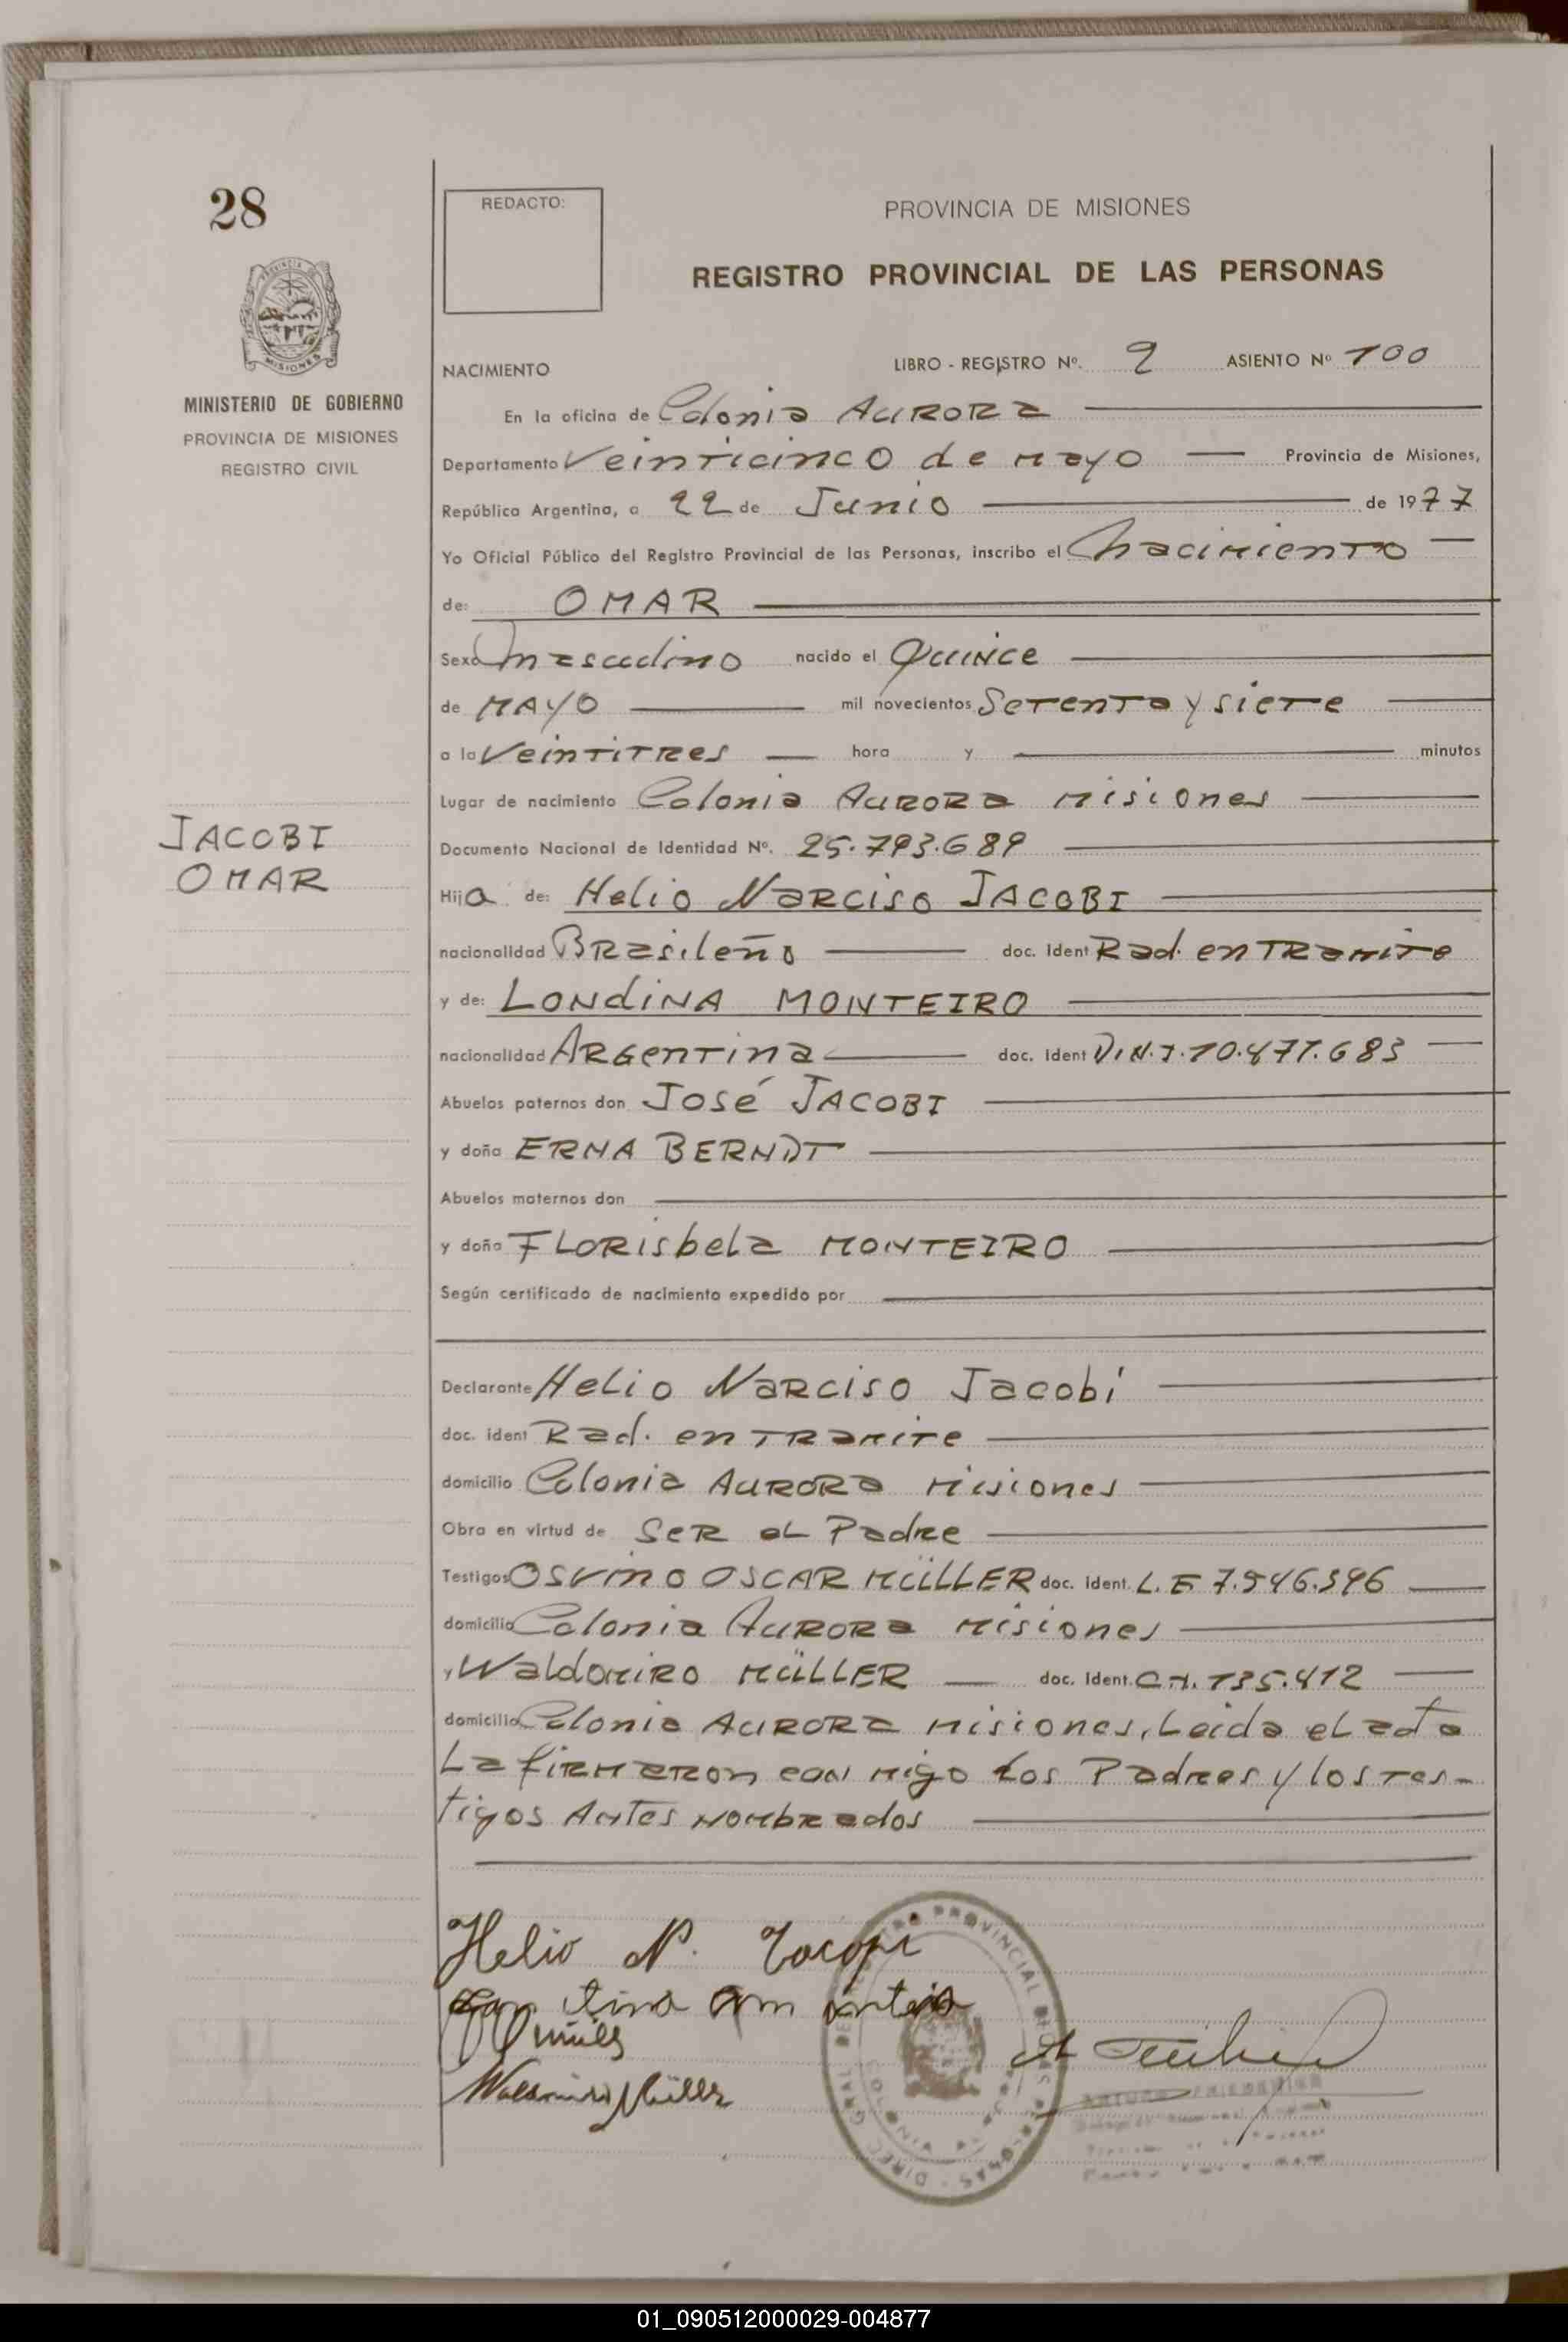 28
REDACTO:
PROVINCIA DE MISIONES
REGISTRO PROVINCIAL DE LAS PERSONAS
MINISTERIO DE GOBIERNO
PROVINCIA DE MISIONES
REGISTRO CIVIL
NACIMIENTO LIBRO - REGISTRO Nº. 2 ASIENTO Nº 100
En la oficina de Colonia AURORA
Departamento Veinticinco de mayo Provincia de Misiones,
República Argentina, a 22 de Junio de 1977
Yo Oficial Público del Registro Provincial de las Personas, inscribo el Nacimiento
de: OMAR
Sexo masculino nacido el QUINCE
de MAYO mil novecientos Setenta y siete
a la Veintitres hora y minutos
Lugar de nacimiento Colonia AURORA Misiones
JACOBI
OMAR
Documento Nacional de Identidad Nº. 25.793.689
Hijo de: Helio Narciso JACOBI
nacionalidad Brasileño doc. Ident Rad. en Tramite
y de: LONDINA MONTEIRO
nacionalidad ARgentina doc. Ident D.N.I. 10.477.683
Abuelos paternos don José JACOBI
y doña ERNA BERNDT
Abuelos maternos don
y doña FLORisbela MONTEIRO
Según certificado de nacimiento expedido por
Declarante Helio Narciso Jacobi
doc. ident Rad. en Tramite
domicilio Colonia AURORA Misiones
Obra en virtud de SER el Padre
Testigos OSVINO OSCAR MÜLLER doc. ident. L.E 7.546.396
domicilio Colonia AURORA Misiones
y Waldomiro MÜLLER doc. Ident. C.I. 135.412
domicilio Colonia AURORA Misiones, Leida el acta
La firmaron con migo Los Padres y los tes-
tigos Antes Nombrados
Helio N. Jacopi
Waldomiro Müller
01_090512000029-004877